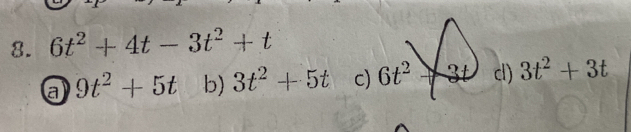 8. 6t² + 4t − 3t² + t
a) 9t² + 5t b) 3t² + 5t c) 6t² + 3t d) 3t² + 3t